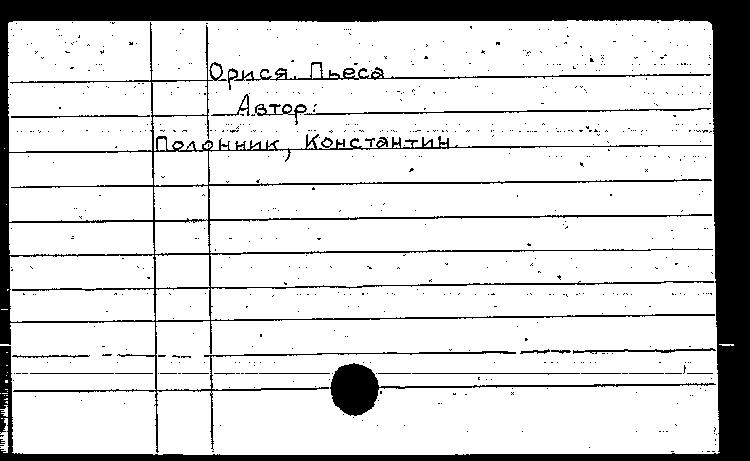 Орися. Пьеса
Автор:
Полонник, Константин